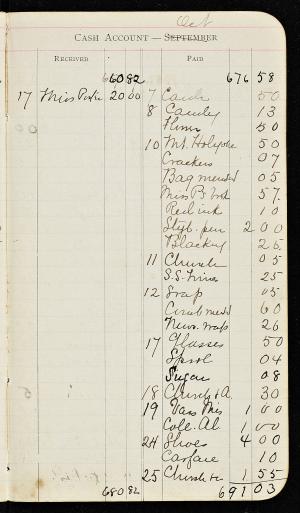 Oct
CASH ACCOUNT — SEPTEMBER
RECEIVED PAID
660 82 676 58
17 Miss Porter 20 00 7 Cards 50
8 Candy 13
Flowers 50
10 Mt. Holyoke 50
Crackers 07
Bag mended 05
Miss B's bot 57
Red ink 10
Styl. pen 2 00
Blacking 25
11 Church 05
S.S. 25
12 Soap 05
mend 60
News. wrap 26
17 Glasses 50
Spool 04
Sugar 08
18 Church + A. 30
19 Mis 1 00
Coll. Al 1 00
24 Shoes 4 00
Carfare 10
25 Church 1 55
680 82 691 03